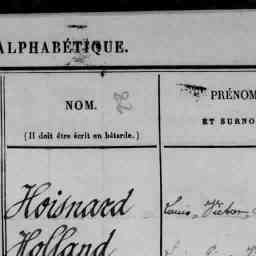 ALPHABÉTIQUE.
NOM.
PRÉNOM
(Il doit être écrit en bâtarde.)
ET SURNO
Hoisnard Louis Victor
Holland